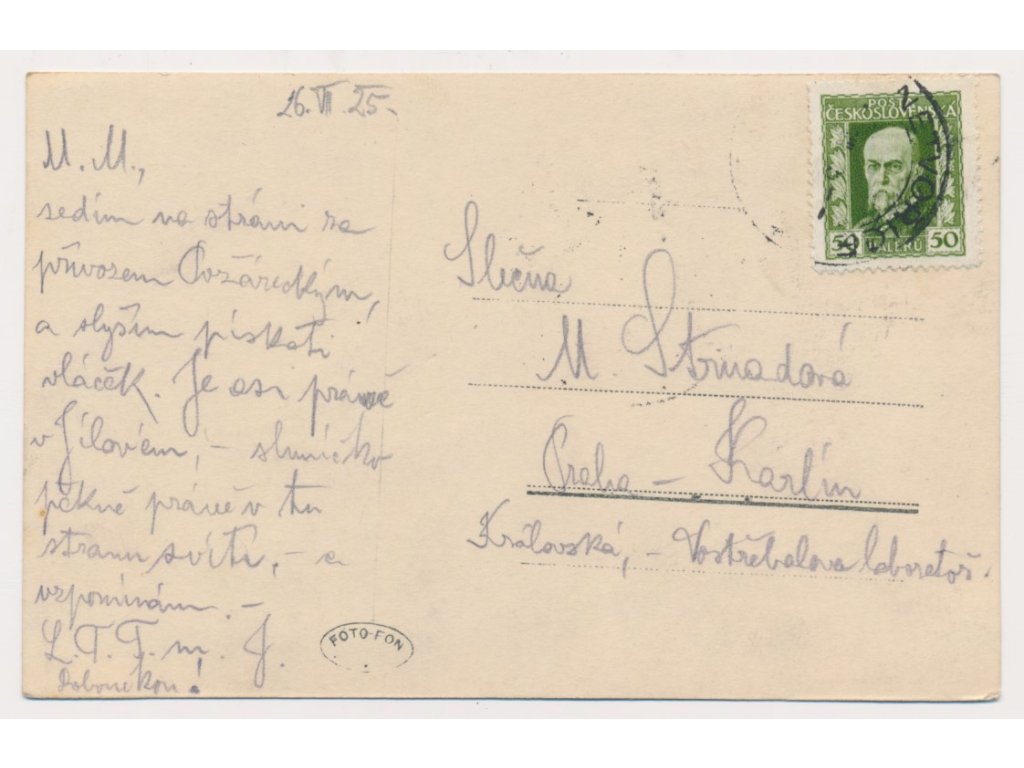 26. VII 25.-
M. M.,
sedím na stráni za
přívozem Požáreckým,
a slyším pískati
vláček. Je asi právě
v Jílovém, - sluníčko
pěkně právě v tu
stranu svítí, - a
vzpomínám. -
L. T. T. m. J.
FOTO-FON
POŠTA
ČESKOSLOVENSKÁ
50 HALÉŘŮ 50
Slečna
M. Strnadová
Praha - Karlín
Královská, - Vostřebalova laboratoř.